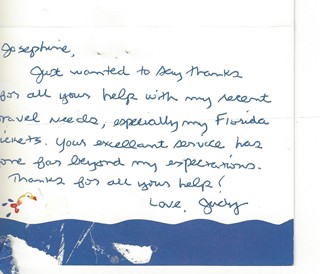 Josephine,
Just wanted to say thanks
for all your help with my recent
ravel needs, especially my Florida
ickets. Your excellant service has
one far beyond my expectations.
Thanks for all your help!
Love, Judy